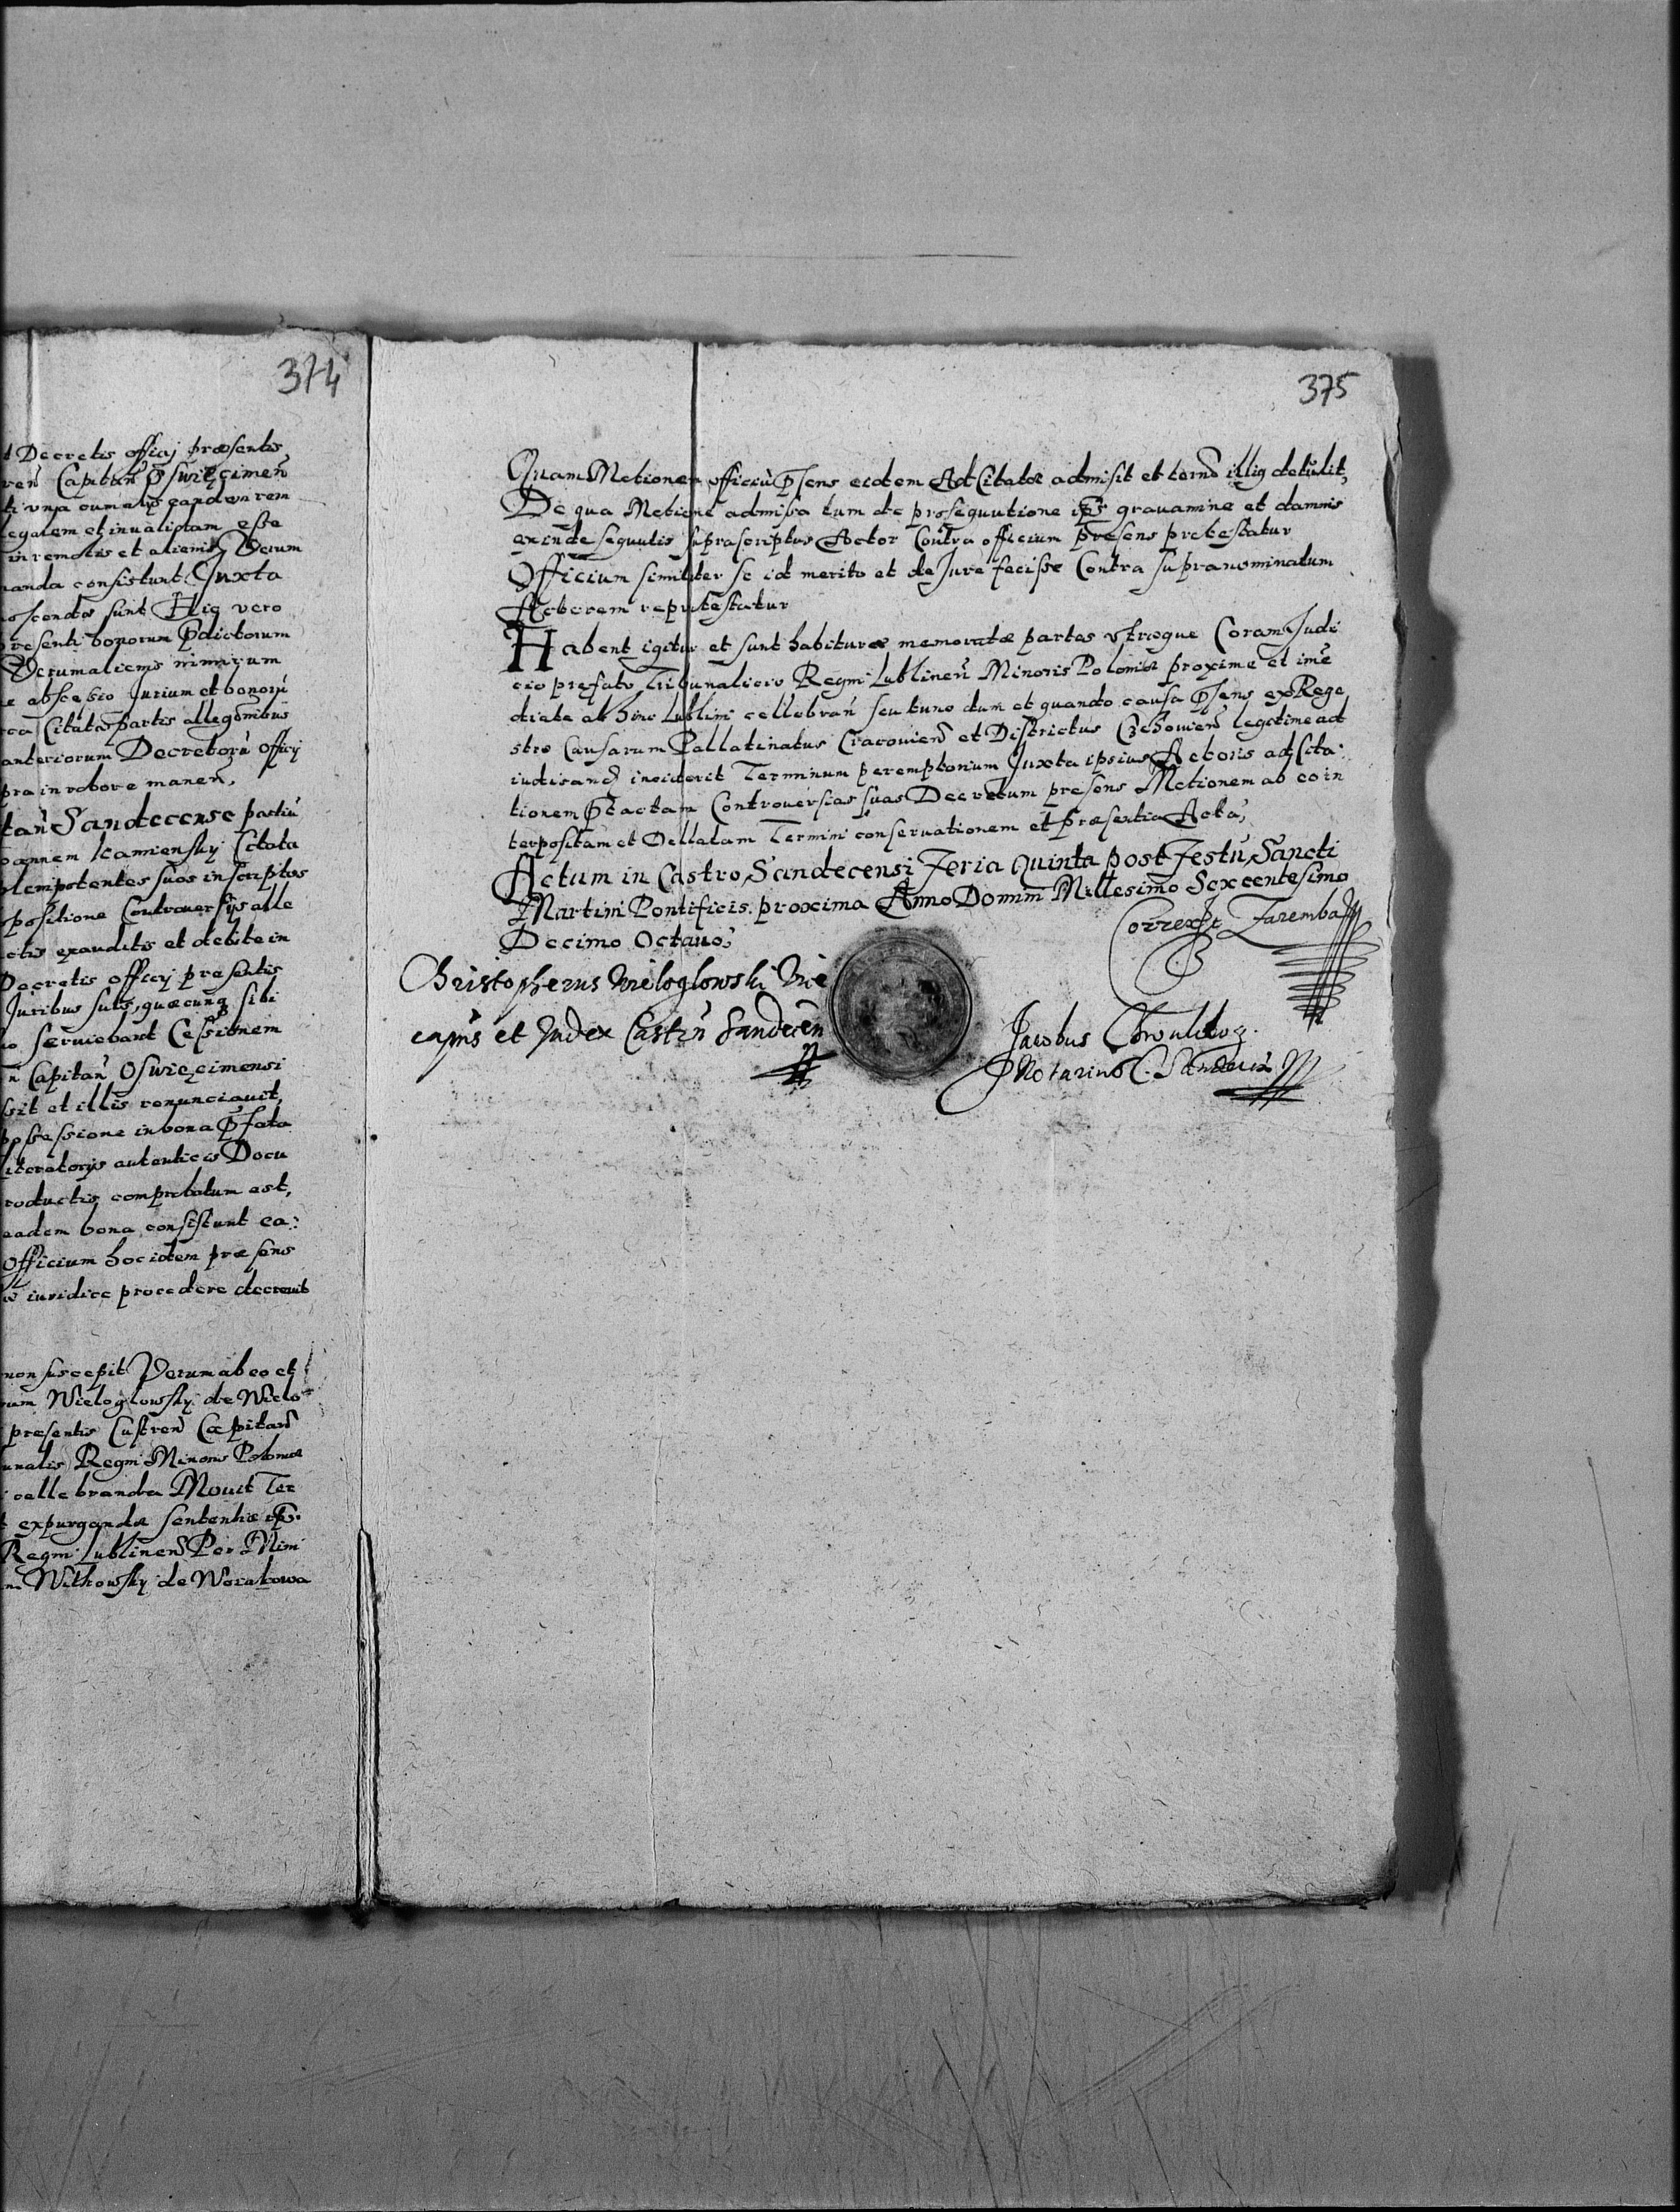 374
t Decretis officij præsentis
ren Capitan Oswięcimen
ti vna cum alijs eandem rem
legalem et inualidam esse
in remotis et alienis Verum
nanda consistunt Juxta
oscendæ sunt Hic vero
resenti bonorum Pdictorum
Verum alienis nimirum
e abscessio Jurium et bonorū
rca Citatæ partis allegõnibus
anteriorum Decretorū officij
pra in robore manen,
tan Sandecense partiū
oannem Kamiensky Citata
plenipotentes suos inscriptos
positione Controuersijs alle
ctis exauditis et debite in
Decretis officij præsentis
Juribus suis, quæcunq sibi
o seruiebant Cessionem
n Capitan Oswięcimensi
ssit et illis renunciauit,
possessione in bona Pfata
literatorijs autenticis Docu
roductis comprobatum est,
eadem bona consistunt ea:
Officium hoc idem præsens
iuridice procedere decreuit
non suscepit Verum ab eo et
um Wieloglowsky de Wielo
presentis Castren Capitan
unalis Regni Minoris Poloniæ
celle branda Mouit Ter
t expurgandæ sententiæ
Regni Lublinen Per Mini
m Witkowsky de Worakowa
375
Quam Motionem officiū Psens eidem Ad Citatæ admisit et termi illis detulit,
De qua Motione admissa tum de prosequutione ips grauamine et damnis
exinde sequutis suprascriptus Actor Contra officium præsens protestatur
Officium similiter se id merito et de Jure fecisse Contra supranominatum
Actorem reprotestatur
Habent igitur et sunt habituræ memoratæ partes vtræque Coram Judi
cio prefato Tribunalicio Regni Lublinen Minoris Poloniæ proxime et ime
diate ab hinc Lublini cellebran seu tunc dum et quando causa Psens ex Rege
stro Causarum Pallatinatus Cracouien et Districtus Czchouien legitime ad
iudicand inciderit Terminum peremptorium Juxta ipsius Actoris ad Cita:
tionem Ptactam Controuersias suas Decretum presens Motionem ab eo in
terpositam et Dellatam Termini conseruationem et præsentia Acta,
Actum in Castro Sandecensi Feria Quinta post Festū Sancti
Martini Pontificis proxima Anno Domini Millesimo Sexcentesimo
Decimo Octauo,
Correxit Zaremba
Christopherus Wieloglowski Vice
capns et Judex Castrn Sandecen
Jacobus
Notarius C. Sandecen